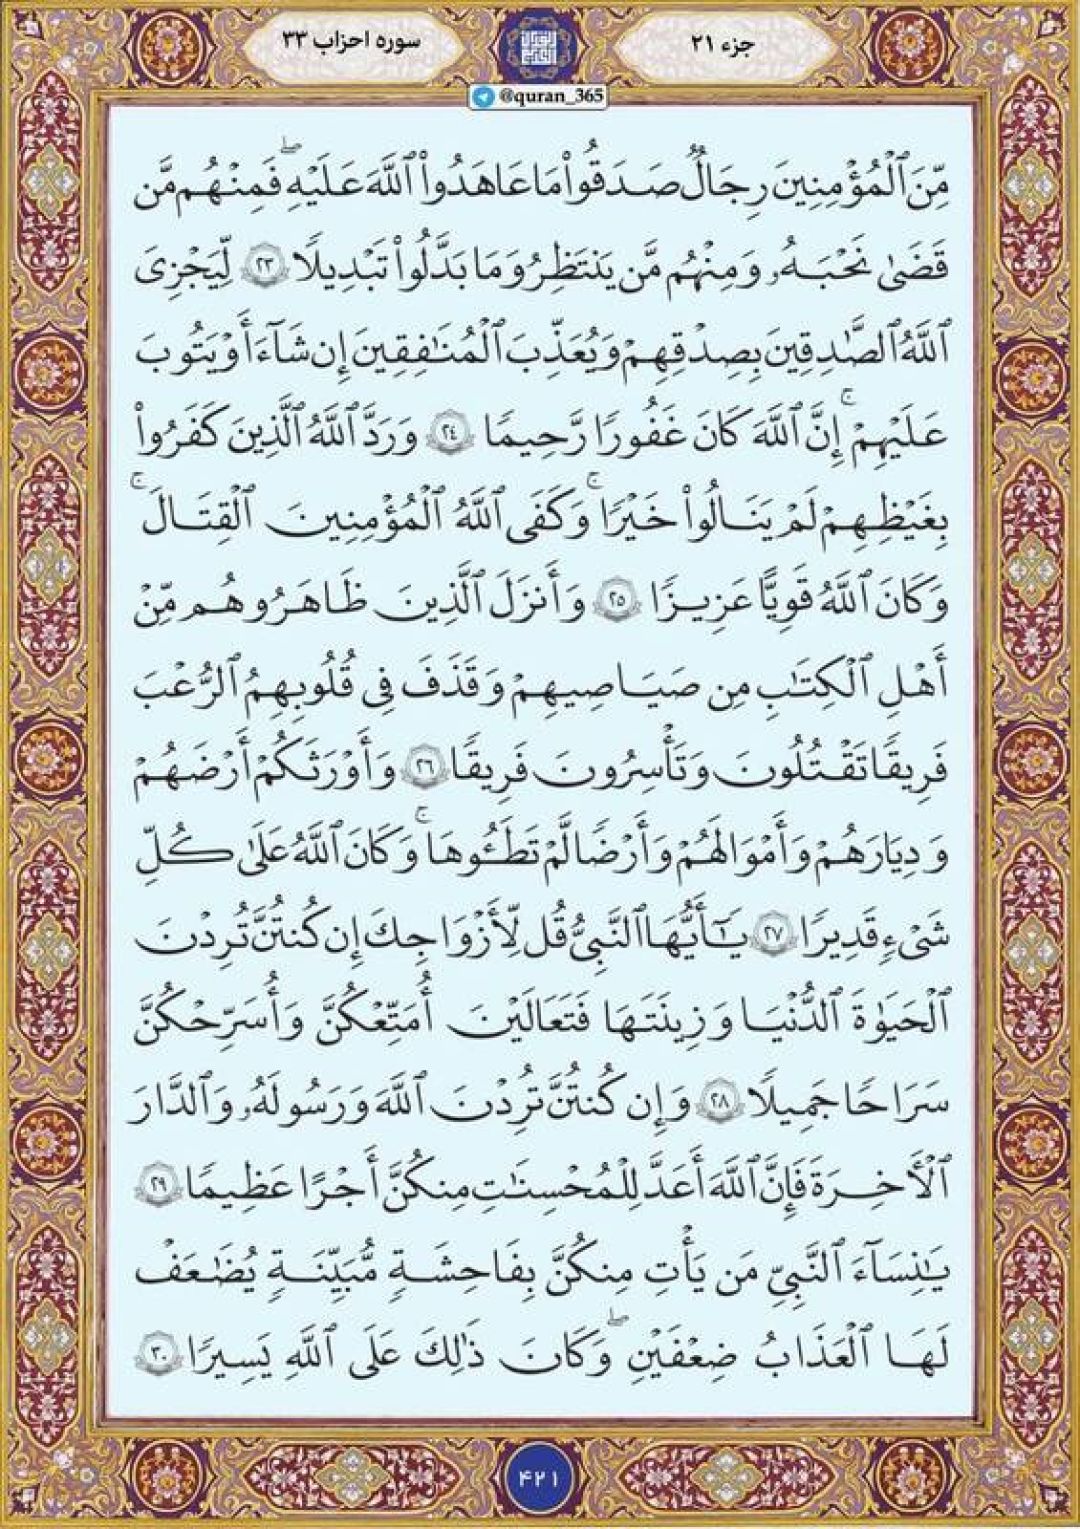 جزء ۲۱
سوره احزاب ۳۳
@quran_365
مِّنَ ٱلْمُؤْمِنِينَ رِجَالٌ صَدَقُوا۟ مَا عَاهَدُوا۟ ٱللَّهَ عَلَيْهِ ۖ فَمِنْهُم مَّن
قَضَىٰ نَحْبَهُۥ وَمِنْهُم مَّن يَنتَظِرُ وَمَا بَدَّلُوا۟ تَبْدِيلًا ٢٣ لِّيَجْزِىَ
ٱللَّهُ ٱلصَّٰدِقِينَ بِصِدْقِهِمْ وَيُعَذِّبَ ٱلْمُنَٰفِقِينَ إِن شَآءَ أَوْ يَتُوبَ
عَلَيْهِمْ ۚ إِنَّ ٱللَّهَ كَانَ غَفُورًا رَّحِيمًا ٢٤ وَرَدَّ ٱللَّهُ ٱلَّذِينَ كَفَرُوا۟
بِغَيْظِهِمْ لَمْ يَنَالُوا۟ خَيْرًا ۚ وَكَفَى ٱللَّهُ ٱلْمُؤْمِنِينَ ٱلْقِتَالَ ۚ
وَكَانَ ٱللَّهُ قَوِيًّا عَزِيزًا ٢٥ وَأَنزَلَ ٱلَّذِينَ ظَاهَرُوهُم مِّنْ
أَهْلِ ٱلْكِتَٰبِ مِن صَيَاصِيهِمْ وَقَذَفَ فِى قُلُوبِهِمُ ٱلرُّعْبَ
فَرِيقًا تَقْتُلُونَ وَتَأْسِرُونَ فَرِيقًا ٢٦ وَأَوْرَثَكُمْ أَرْضَهُمْ
وَدِيَارَهُمْ وَأَمْوَالَهُمْ وَأَرْضًا لَّمْ تَطَـُٔوهَا ۚ وَكَانَ ٱللَّهُ عَلَىٰ كُلِّ
شَىْءٍ قَدِيرًا ٢٧ يَٰٓأَيُّهَا ٱلنَّبِىُّ قُل لِّأَزْوَاجِكَ إِن كُنتُنَّ تُرِدْنَ
ٱلْحَيَوٰةَ ٱلدُّنْيَا وَزِينَتَهَا فَتَعَالَيْنَ أُمَتِّعْكُنَّ وَأُسَرِّحْكُنَّ
سَرَاحًا جَمِيلًا ٢٨ وَإِن كُنتُنَّ تُرِدْنَ ٱللَّهَ وَرَسُولَهُۥ وَٱلدَّارَ
ٱلْأَخِرَةَ فَإِنَّ ٱللَّهَ أَعَدَّ لِلْمُحْسِنَٰتِ مِنكُنَّ أَجْرًا عَظِيمًا ٢٩
يَٰنِسَآءَ ٱلنَّبِىِّ مَن يَأْتِ مِنكُنَّ بِفَاحِشَةٍ مُّبَيِّنَةٍ يُضَٰعَفْ
لَهَا ٱلْعَذَابُ ضِعْفَيْنِ ۖ وَكَانَ ذَٰلِكَ عَلَى ٱللَّهِ يَسِيرًا ٣٠
۴۲۱